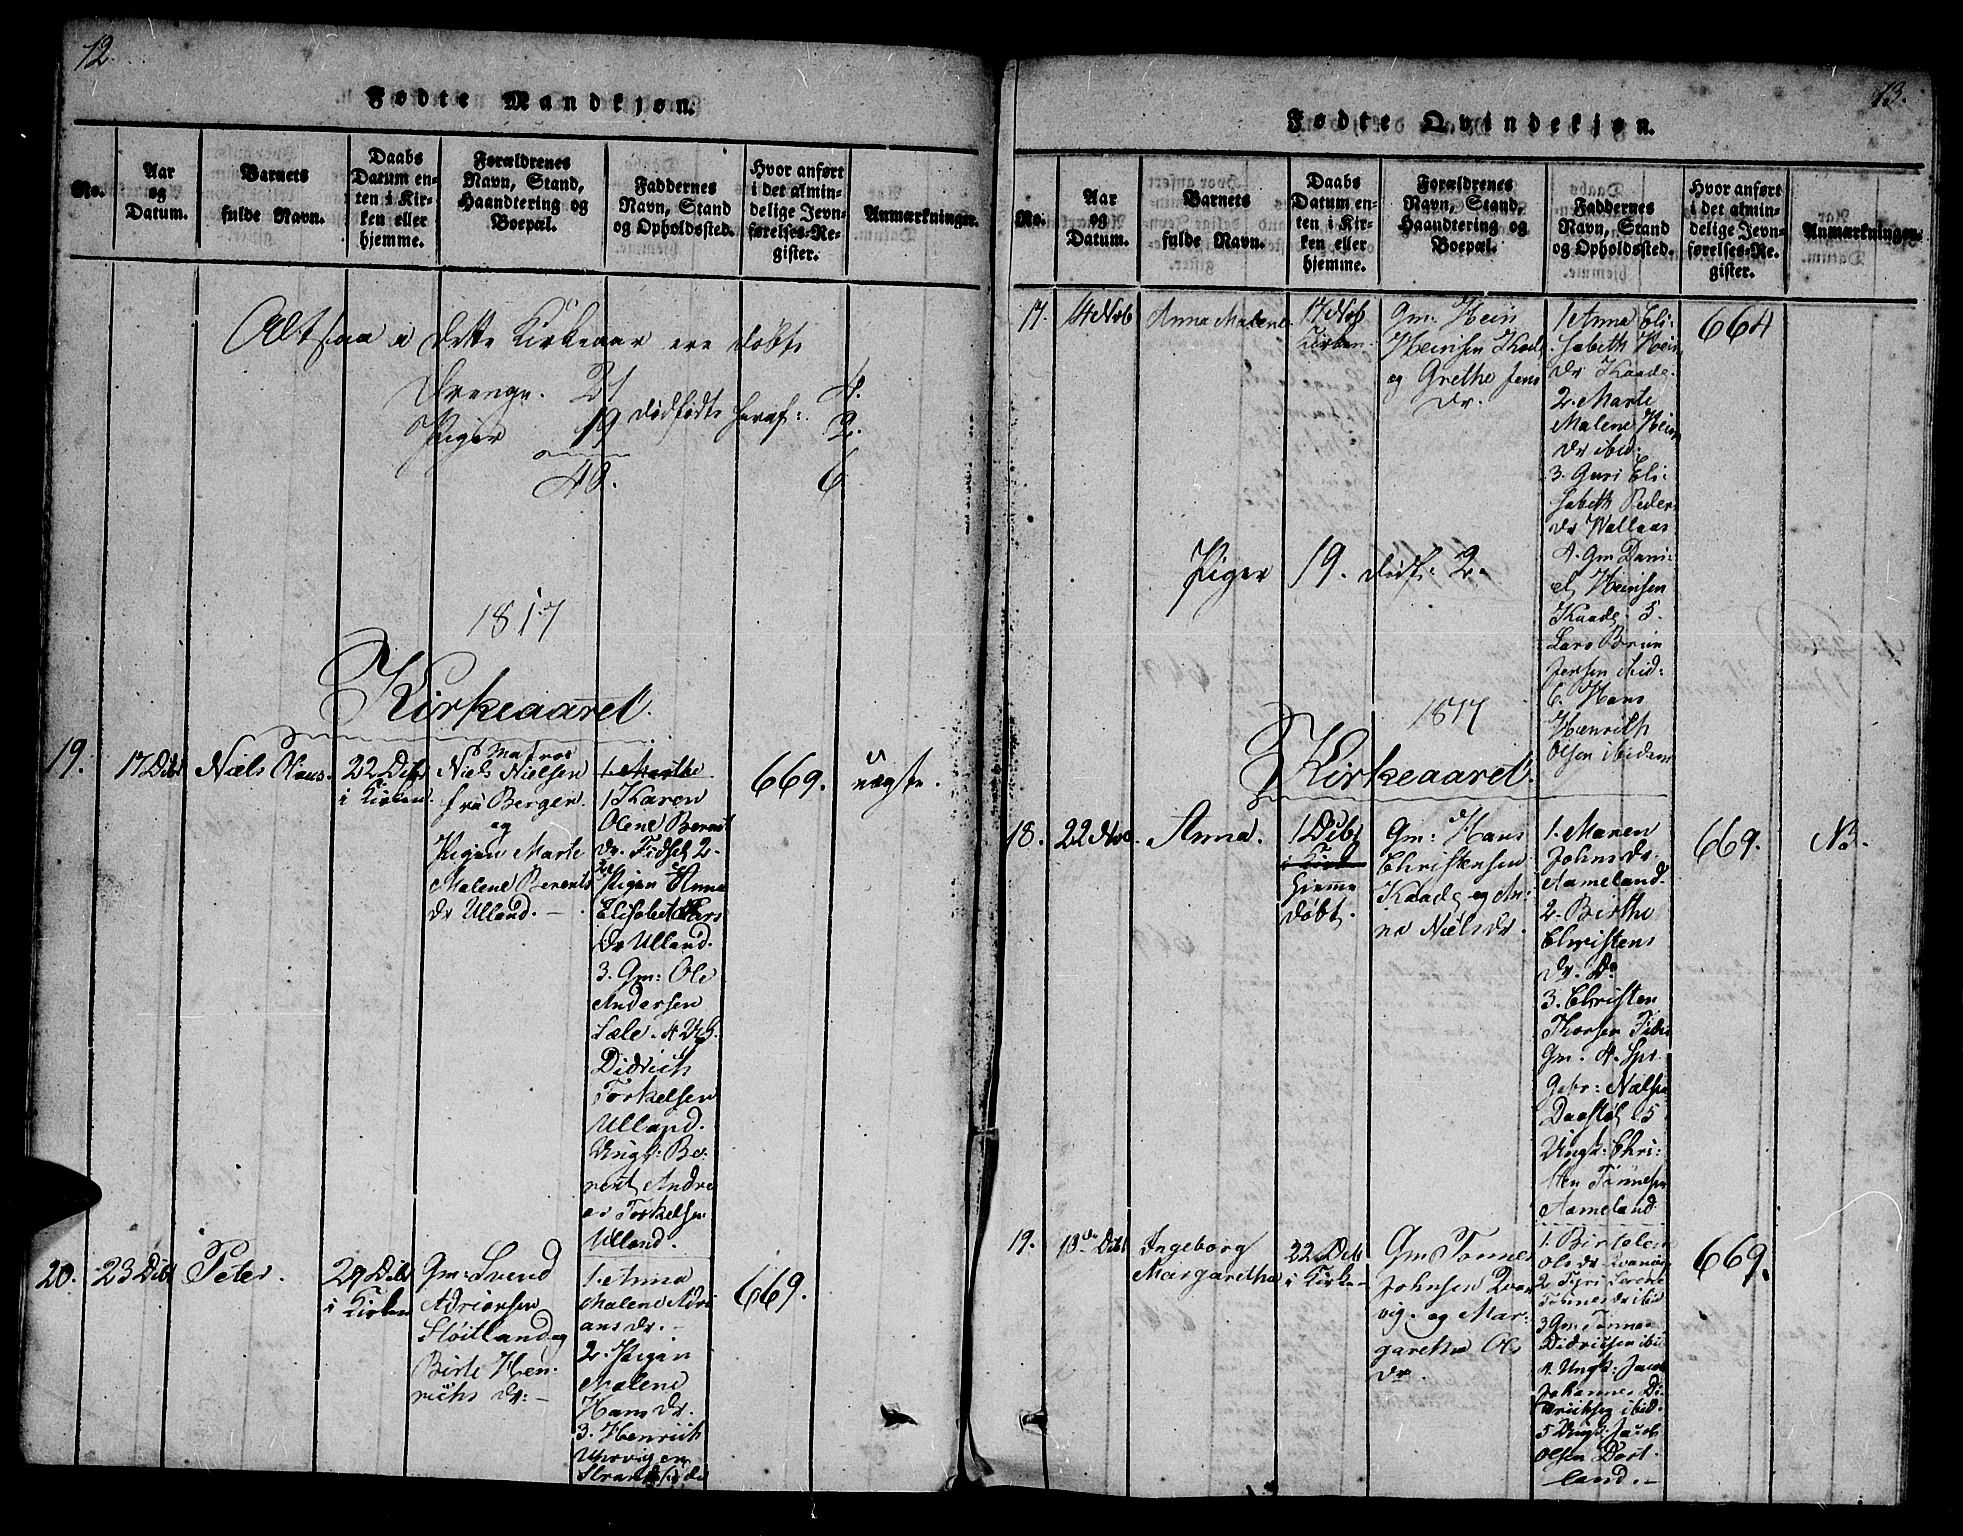 12.
Fødte Mandkjøn.
No.
Aar
og
Datum.
Barnets
fulde Navn.
Daabs
Datum en-
ten i Kir-
ken eller
hjemme.
Forældrenes
Navn, Stand,
Haandtering og
Boepæl.
Faddernes
Navn, Stand
og Opholdssted.
Hvor anført
i det almin-
delige Jevn-
førelses-Re-
gister.
Anmærkninger.
Altsaa i dette Kirkeaar ere døbte
Drenge. 21 4.
Piger 19 dødfødte heraf: 2.
40. 6
1817
Kirkeaaret.
19.
17 Debr
Niels Olaus.
22 Debr
i Kirken.
Matros
Niels Nielsen
fra Bergen
og
Pigen Marte
Malene Berents
dr Ulland. —
1. Marthe
1 Karen
Olene Berent
dr. Fidsel 2.
Pigen Anna
Elisabet Lars
dr Ulland.
3. Gm: Ole
Andersen
Didrich
Torkelsen
Ulland.
Ungk: Be-
rent Andre
as Torkelsen
Ulland.
669.
uægte.
20.
23 Debr
Peter.
29 Debr
i Kirken
Gm: Svend
Adriansen
Støitland og
Birte Hen-
richs dr: —
1. Anna
Malene Adri
ans dr. —
2. Pigen
Malene
Hans dr.
3. Henrich
669.
13.
Fødte Qvindekjøn.
No.
Aar
og
Datum.
Barnets
fulde Navn.
Daabs
Datum en-
ten i Kir-
ken eller
hjemme.
Forældrenes
Navn, Stand,
Haandtering og
Boepæl.
Faddernes
Navn, Stand
og Opholdssted.
Hvor anført
i det almin-
delige Jevn-
førelses-Re-
gister.
Anmærkninger.
17.
14 Nvb
Anna Malene
17 Nvb
Kirken.
Gm: Hein
Heinsen Kaade
og Grethe Jens
dr.
1 Anna Eli-
sabeth Hein
dr Kaade.
2. Marte
Malene Hein
dr ibid:
3. Guri Eli-
sabeth Peder
dr Wallaas
4. Gm Dani-
el Heinsen
Kaade. 5.
Lars Brun
Jensen ibid:
6. Hans
Henrich
Olsen ibidem
664
Piger 19. dødf: 2.
1817
Kirkeaaret.
18.
22 Nov.
Anna.
1 Debr
i Kirk
hjemme
døbt.
Gm: Hans
Christensen
Kaade og An-
ne Niels dr.
1. Maren
Johns dr
Aameland.
2. Birthe
Christens
dr. Do
3. Christen
Gm. 4. Spr
Gabr: Nielsen
Daastøl 5
Ungk: Chri-
sten Tønnesen
Aameland
669.
NB.
19.
18de Debr
Ingeborg
Margaretha
22 Debr
i Kirken
Gm Tønnes
Johnsen Qvar
vig. og Mar-
garetha Ols
dr.
2 Syri Serene
Tønnes dr ibid
3 Gm: Tønnes
Didrichsen ibid
4. Ungk: Jacob
Johannes Di-
drichsen ibid.
5 Ungk: Jacob
Olsen Dort-
land. —
669.